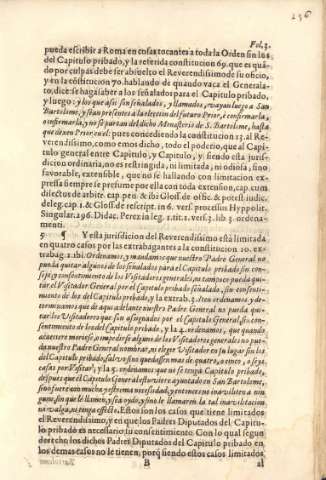 Fol. 3.
pueda escribir a Roma en cosas tocantes a toda la Orden sin los
del Capitulo pribado, y la referida constitucion 69. que es quã
do por culpas debe ser absuelto el Reverendisimo de su oficio,
y en la cõstitucion 70. hablando de quando vaca el Generala-
to, dice: se haga saber a los señalados para el Capitulo pribado,
y luego: y los que asi son señalados, y llamados, vayan luego a San
Bartolome, y sean presentes a la eleccion del futuro Prior, è confirmarla,
è confirmarla, y no se partan del dicho Monasterio de S. Bartolome, hasta
que tienen Prior, en el: pues concediendo la constitucion 13. al Re-
verendisimo, como emos dicho, todo el poderio, que al Capi-
tulo general entre Capitulo, y Capitulo, y siendo esta juris-
dicion ordinaria, no es restringida, ni limitada, ni odiosa, sino
favorable, extensible, que no se hallando con limitacion ex-
pressa siempre se presume por ella con toda extension, cap. cum
dilectus de arbitr. cap. pen. & ibi Gloss. de offic. & potest. iudic.
deleg. cap. 1. & Gloss. de rescript. in 6. verf. processus Hyppolit.
Singular. 296. Didac. Perez in leg. 1. tit. 1. vers. 3. lib. 3. ordena-
menti.
5 Y esta jurisdicion del Reverendissimo està limitada
en quatro casos por las extrabagantes a la constitucion 20. ex-
trabag. 2. ibi: Ordenamos, y mandamos que nuestro Padre General no
pueda quitar algunos de los señalados para el Capitulo pribado sin con-
sejo, y consentimiento de los Visitadores generales, ni tampoco pueda qui-
tar el Visitador General por el Capitulo pribado señalado, sin consenti-
miento de los del Capitulo pribado, y la extrab. 3. Iten ordenamos, y de-
terminamos que de aqui adelante nuestro Padre General no pueda qui-
tar los Visitadores que son asignados por el Capitulo General, sin con-
sentimiento de los del Capitulo pribado, y la 4. ordenamos, que quando
acaeciere morirse, ò impedirse alguno de los Visitadores generales no pue-
da nuestro Padre General nombrar, ni elegir Visitador en su lugar sin los
del Capitulo pribado, salvo si no quedassen mas de quatro, ò cinco, ò seis
casas por Visitar; y la 5. ordenamos que no se tenga Capitulo pribado,
despues que el Capitulo General estuviere ayuntado en San Bartolome,
sino fuere con mucha, y extrema necesidad, y entonces no inovilicen a nin-
guno, sin que le llamen, y sea oydo, y si no le llamaren la tal inovilitacion
no valga, ni tenga efecto. Estos son los casos que tiene limitados
el Reverendisimo, y en que los Padres Diputados del Capitu-
lo pribado es necessario su consentimiento. Con lo qual segun
derecho los dichos Padres Diputados del Capitulo pribado en
los demas casos no le tienen, porq̃ siendo estos casos limitados
B
al